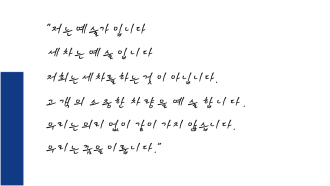 "저는 예술가 입니다
세차는 예술 입니다
저희는 세차를 하는 것이 아닙니다.
고객의 소중한 차량을 예술 합니다.
우리는 의리 없이 같이 가지 않습니다.
우리는 꿈을 이룹니다."